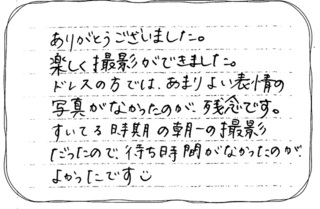 ありがとうございました。
楽しく撮影ができました。
ドレスの方では、あまりよい表情の
写真がなかったのが、残念です。
すいてる時期の朝一の撮影
だったので、待ち時間がなかったのが、
よかったです☺